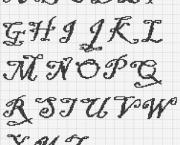 G H I J K L
M N O P Q
R S T U V W
X Y Z